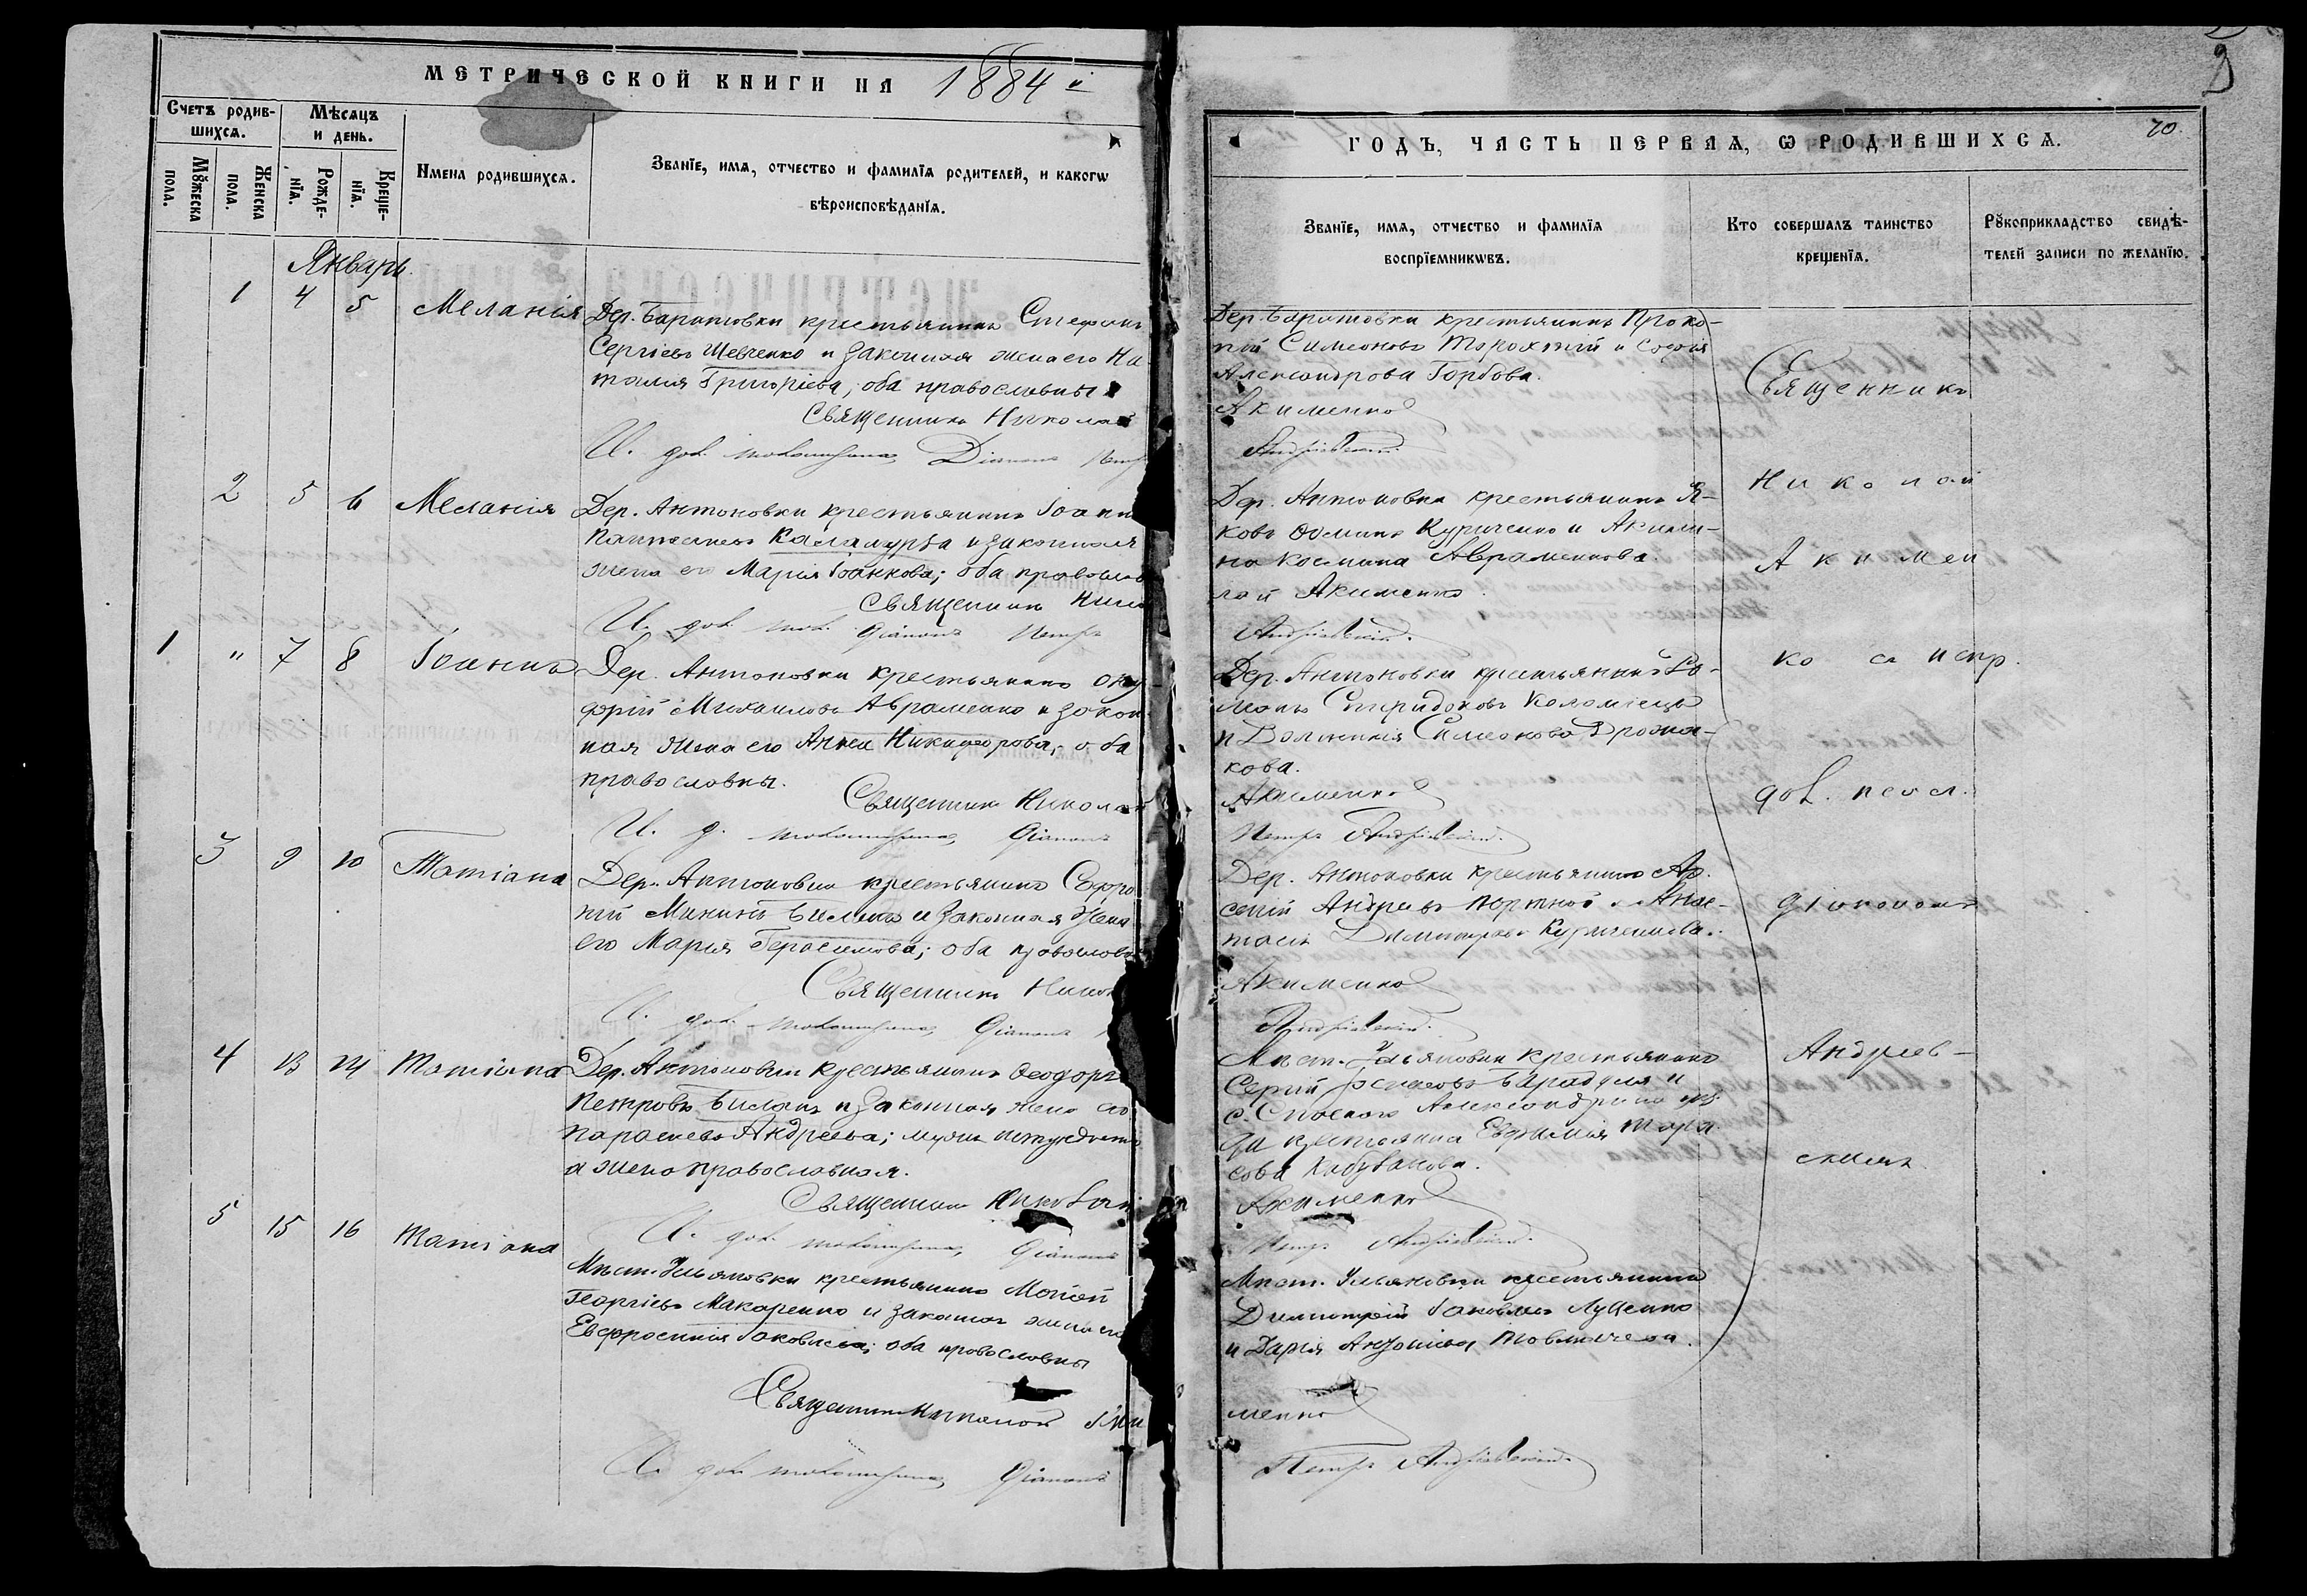 МЕТРИЧЕСКОЙ КНИГИ НА 1884 й
Счетъ родившихся.
Мѣсяцъ и день.
Мꙋжеска пола.
Женска пола.
Рожденїя.
Крещенїя.
Имена родившихся.
Званїе, имя, отчество и фамилїя родителей, и какогѡ
вѣроисповѣданїя.
Январь.
1 4 5 Меланія
Дер. Баратовки крестьянинъ Стефанъ
Сергіевъ Шевченко и законная жена его На
талия Григоріева; оба православны
Священникъ Николай
И. дол. псаломщика Діаконъ Петръ
2 5 6 Меланія
Дер. Антоновки крестьянинъ Іоаннъ
Каламурза и законная
жена его Марія Іоаннова; оба православ
Священникъ Нико
И. дол. псал. Діаконъ Петръ
1 " 7 8 Іоаннъ
Дер. Антоновки крестьянинъ Ону
фрій Михаиловъ Авраменко и закон
ная жена его Анна Никифорова; оба
православны.
Священникъ Николай
И. д. псаломщика, Діаконъ
3 9 10 Татіана
Дер. Антоновки крестьянинъ Софро
ній Мининъ Биланъ и законная жена
его Марія Герасимова; оба православ
Священникъ Никол
И. дол. псаломщика, Діаконъ
4 13 14 Татіана
Дер. Антоновки крестьянинъ Феодоръ
Петровъ Биланъ и законная жена его
Параскева Андреева; мужъ
а жена православная.
Священникъ Николай
И. дол. псаломщика, Діаконъ
5 15 16 Татіана
Мѣст. Ульяновки крестьянинъ Моисей
Георгіевъ Макаренко и законная жена его
Евфросинія Іаковлева; оба православны
Священникъ Николай Аки
И. дол. псаломщика, Діаконъ
9
ГОДЪ, ЧАСТЬ ПЕРВАЯ, Ѡ РОДИВШИХСЯ.
Званїе, имя, отчество и фамилїя
воспрїемникѡвъ.
Кто совершалъ таинство
крещенїя.
Рꙋкоприкладство свидѣ-
телей записи по желанїю.
Дер. Баратовки крестьянинъ Проко-
пій Симеоновъ Торохтій и Софія
Александрова Горбова.
Акименко
Андріевскій.
Дер. Антоновки крестьянинъ Я-
ковъ Куриченко и Акили-
на Космина Авраменкова.
лай Акименко.
Андріевскій.
Дер. Антоновки крестьянинъ Ро-
манъ Спиридоновъ Коломіецъ
и Симеонова
кова.
Акименко
Петръ Андріевскій.
Дер. Антоновки крестьянинъ Ар-
сеній Андреевъ Портной и Анас-
тасія Димитріева Куриченкова.
Акименко
Андріевскій.
Мѣст. Ульяновки крестьянинъ
Сергій
с.
крестьянка Евфимія Тара
сова
Акименко
Петръ Андріевскій.
Мѣст. Ульяновки крестьянинъ
Димитрій Іаковлевъ Луценко
и Дарія
менко
Петръ Андріевскій.
Священникъ
Николай
Акимен
ко съ испр.
дол. псал.
діакономъ
Андріев-
скимъ.